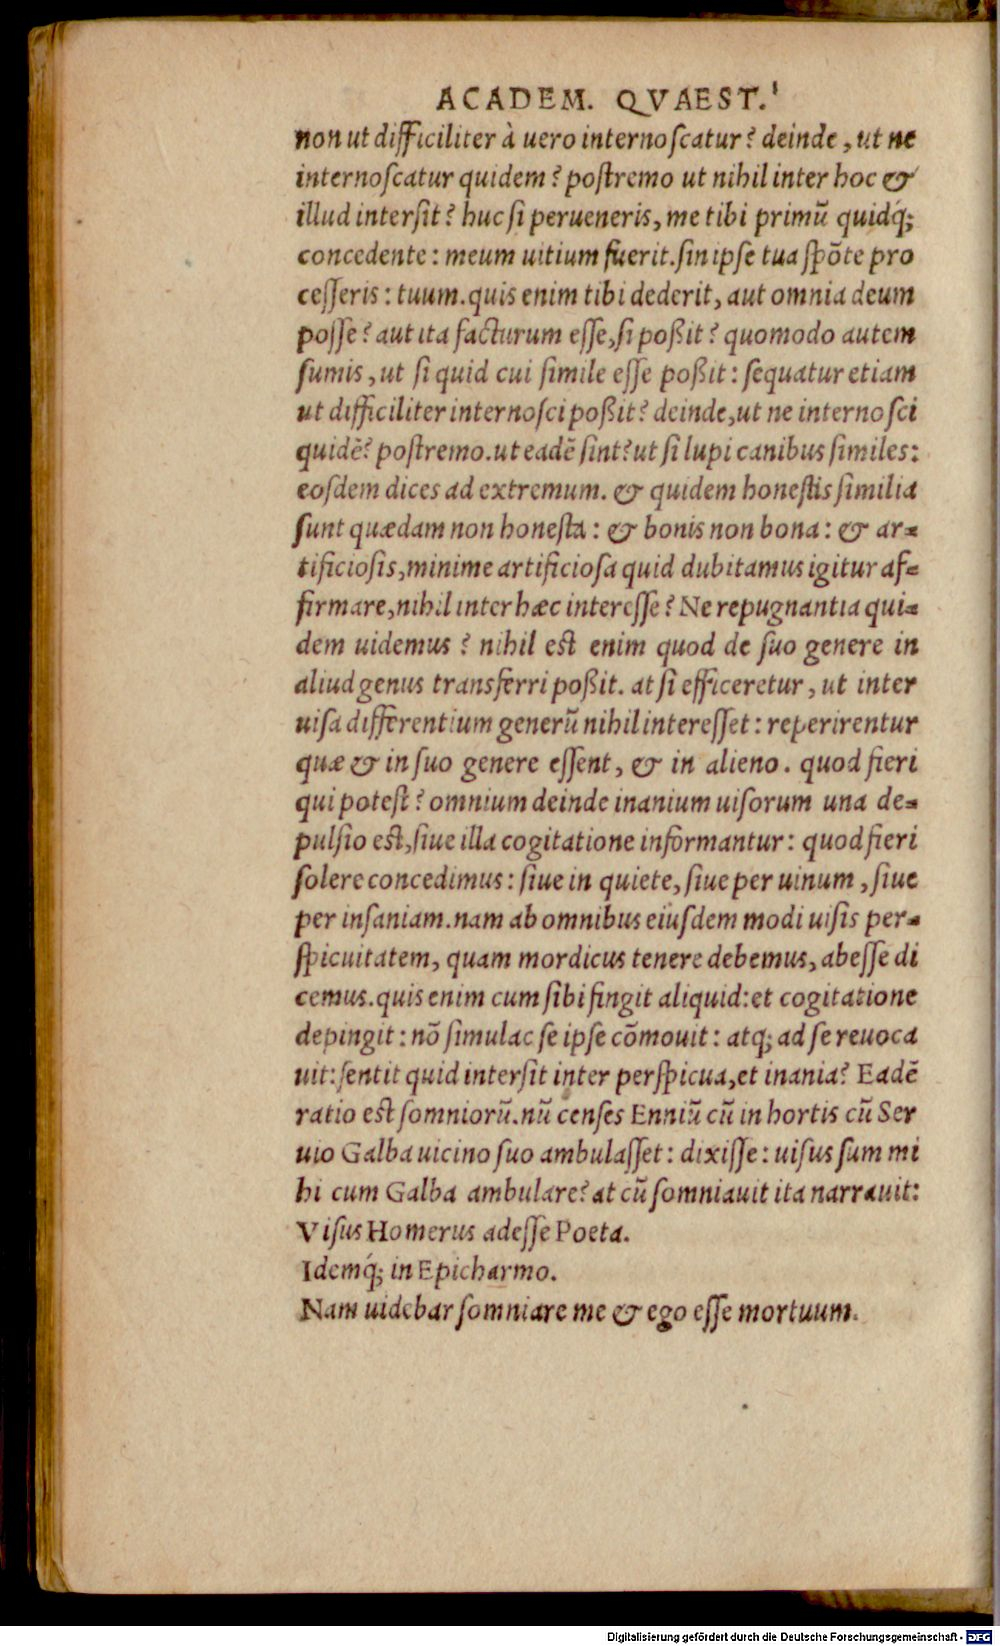 ACADEM. QVAEST.
non ut difficiliter à uero internoscatur? deinde, ut ne
internoscatur quidem? postremo ut nihil inter hoc &
illud intersit? huc si perueneris, me tibi primū quidq́;
concedente: meum uitium fuerit. sin ipse tua spōte pro
cesseris: tuum. quis enim tibi dederit, aut omnia deum
posse? aut ita facturum esse, si poßit? quomodo autem
sumis, ut si quid cui simile esse poßit: sequatur etiam
ut difficiliter internosci poßit? deinde, ut ne internosci
quidē? postremo. ut eadē sint? ut si lupi canibus similes:
eosdem dices ad extremum. & quidem honestis similia
sunt quædam non honesta: & bonis non bona: & ar-
tificiosis, minime artificiosa quid dubitamus igitur af-
firmare, nihil inter hæc interesse? Ne repugnantia qui-
dem uidemus? nihil est enim quod de suo genere in
aliud genus transferri poßit. at si efficeretur, ut inter
uisa differentium generū nihil interesset: reperirentur
quæ & in suo genere essent, & in alieno. quod fieri
qui potest? omnium deinde inanium uisorum una de-
pulsio est, siue illa cogitatione informantur: quod fieri
solere concedimus: siue in quiete, siue per uinum, siue
per insaniam. nam ab omnibus eiusdem modi uisis per-
spicuitatem, quam mordicus tenere debemus, abesse di
cemus. quis enim cum sibi fingit aliquid: et cogitatione
depingit: nō simulac se ipse cōmouit: atq; ad se reuoca
uit: sentit quid intersit inter perspicua, et inania? Eadē
ratio est somniorū. nū censes Enniū cū in hortis cū Ser
uio Galba uicino suo ambulasset: dixisse: uisus sum mi
hi cum Galba ambulare? at cū somniauit ita narrauit:
Visus Homerus adesse Poeta.
Idemq́; in Epicharmo.
Nam uidebar somniare me & ego esse mortuum.
Digitalisierung gefördert durch die Deutsche Forschungsgemeinschaft - DFG